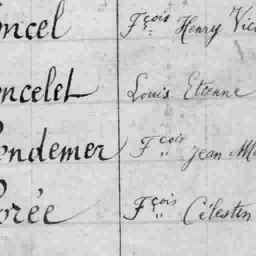 ncel Fçois Henry Vic
ncelet Louis Etienne
ondemer Fçois Jean Ma
orée Fçois Célestin